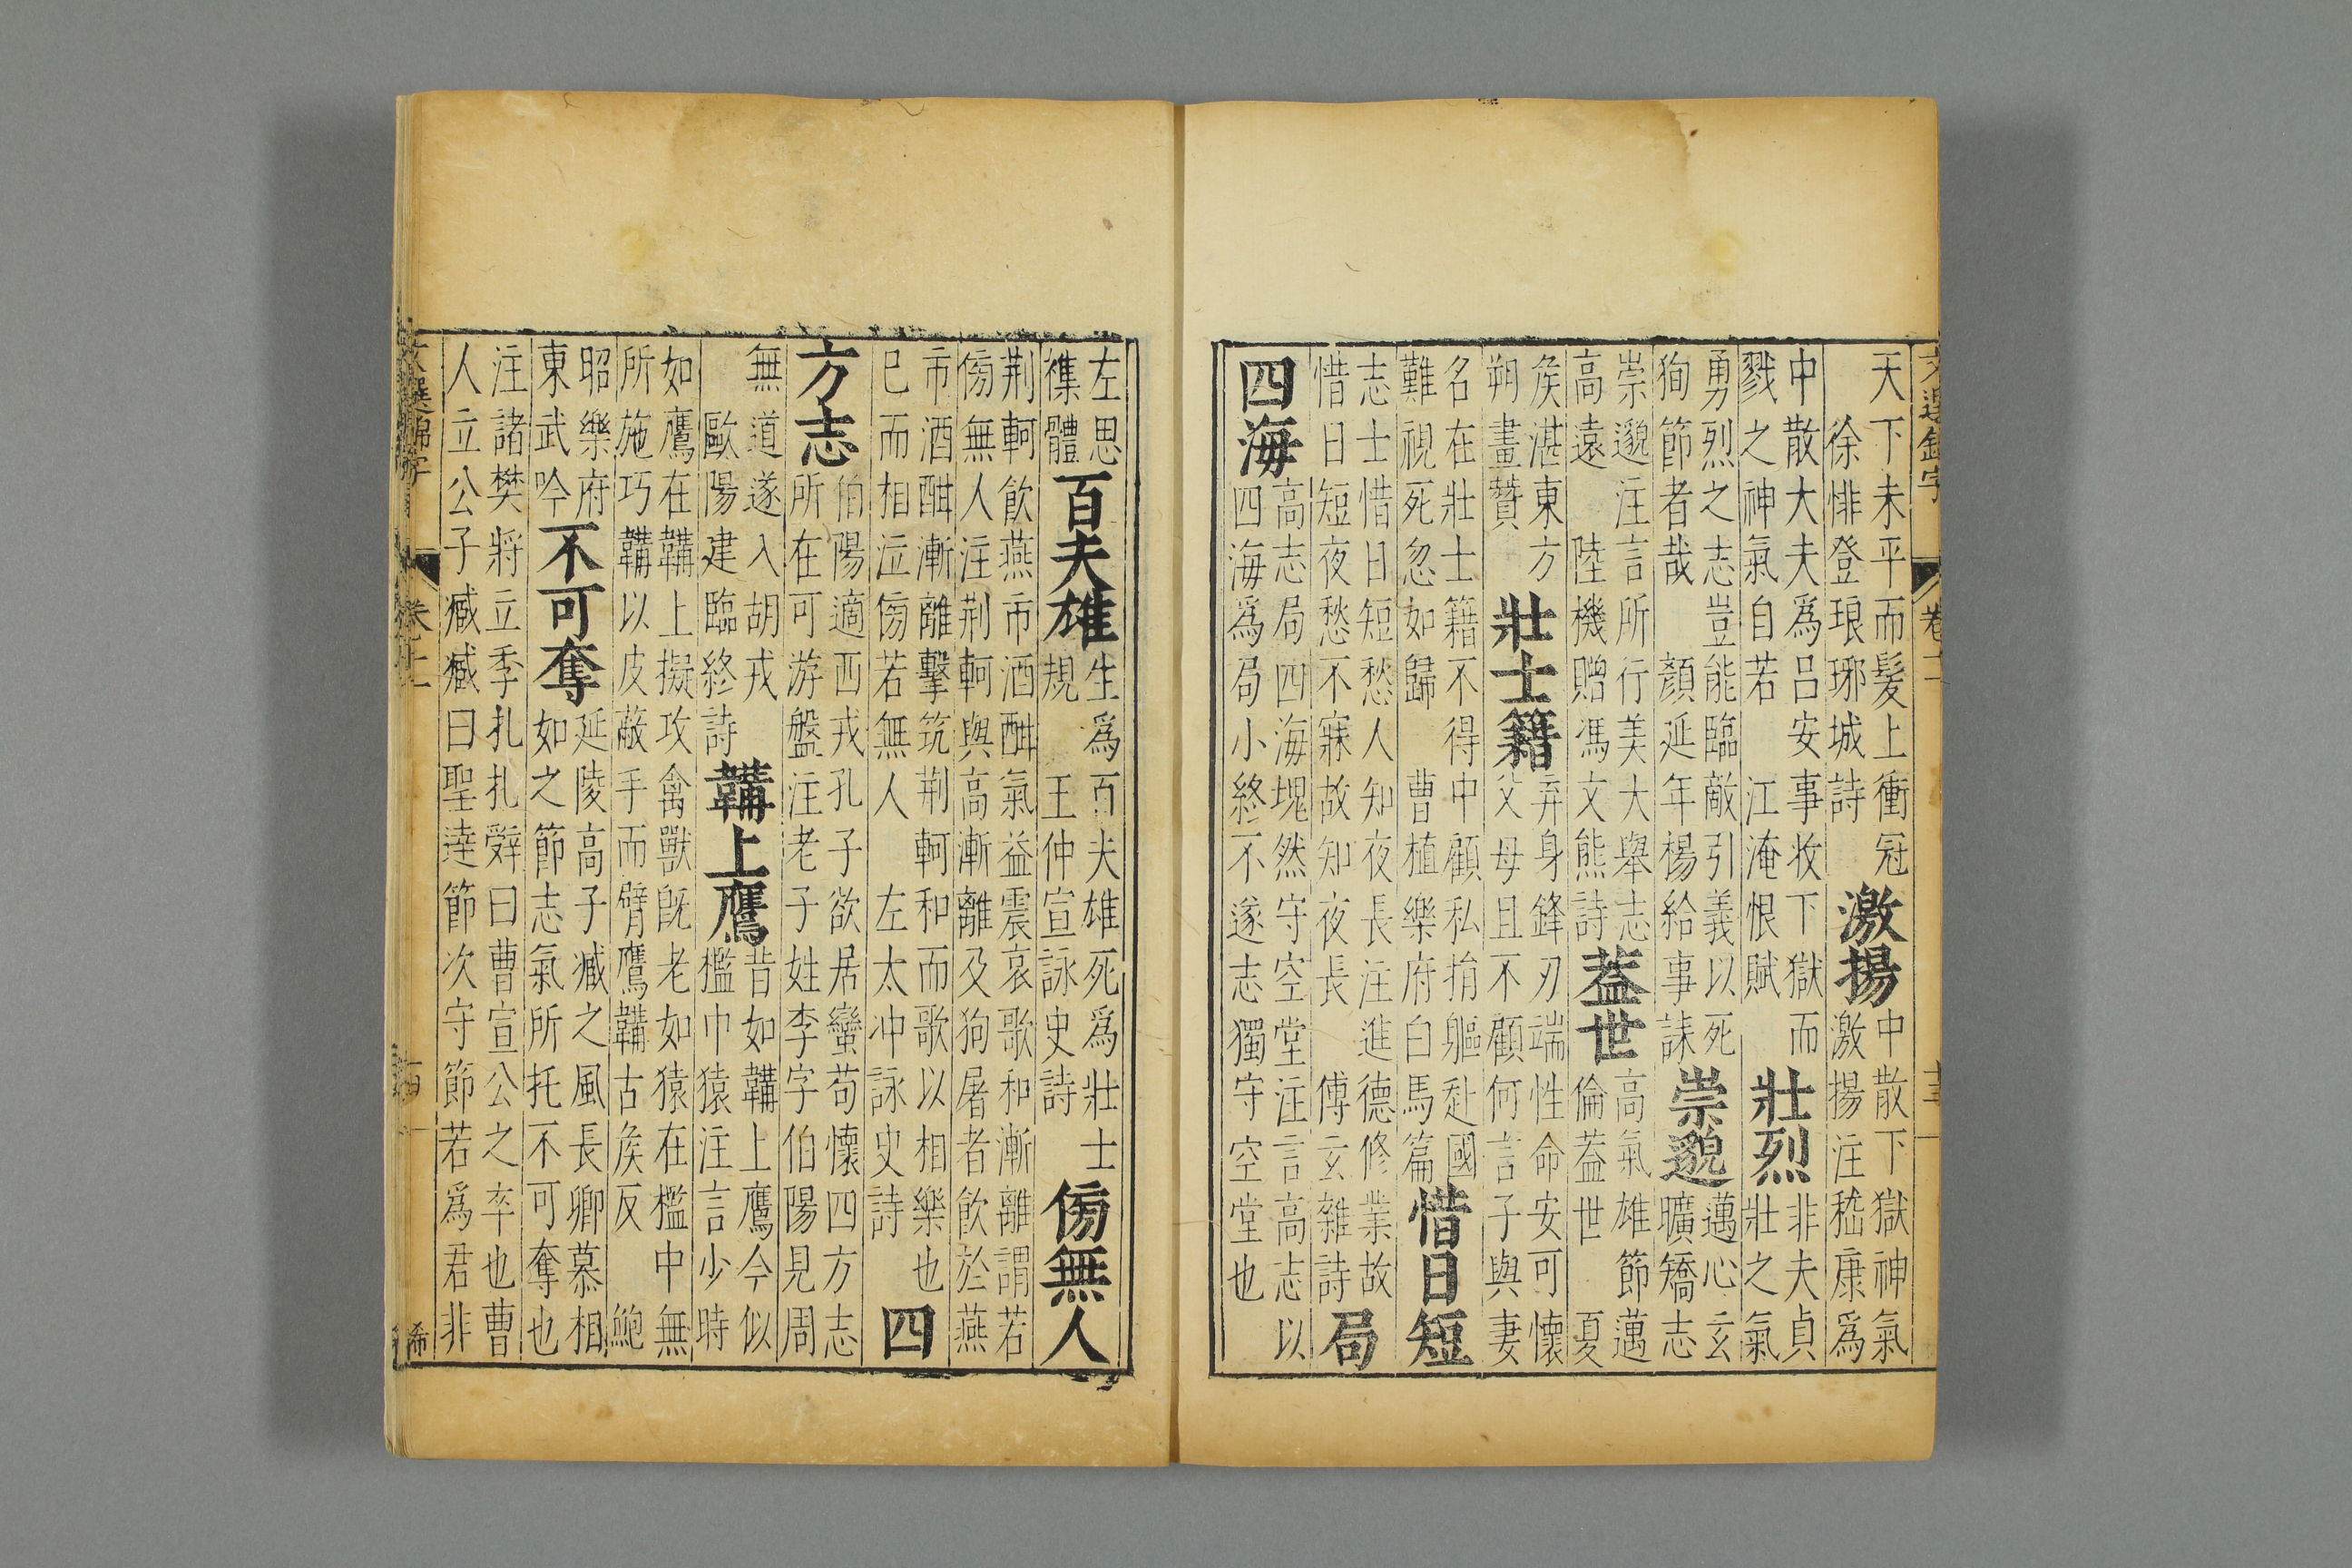 文選錦字 卷十二 十三
天下未平而髮上衝冠
徐悱登琅琊城詩
激揚
中散下獄神氣
激揚注嵇康為
中散大夫為呂安事收下獄而
戮之神氣自若 江淹恨賦
壯烈
非夫貞
壯之氣
勇烈之志豈能臨敵引義以死
狥節者哉 顏延年楊給事誄
崇邈
邁心玄
曠矯志
崇邈 注言所行美大舉志
高遠 陸機贈馮文熊詩
葢世
高氣雄節邁
倫葢世 夏
矦湛東方
朔畫贊
壯士籍
弃身鋒刃端性命安可懷
父母且不顧何言子與妻
名在壯士籍不得中顧私捐軀赴國
難視死忽如歸 曹植樂府白馬篇
惜日短
志士惜日短愁人知夜長注進德修業故
惜日短夜愁不寐故知夜長 傅玄雜詩
局
四海
高志局四海塊然守空堂注言高志以
四海為局小終不遂志獨守空堂也
左思
襍體
百夫雄
生為百夫雄死為壯士
規 王仲宣詠史詩
傍無人
荆軻飲燕市酒酣氣益震哀歌和漸離謂若
傍無人注荆軻與高漸離及狗屠者飲於燕
市酒酣漸離擊筑荆軻和而歌以相樂也
已而相泣傍若無人 左太冲詠史詩
四
方志
伯陽適西戎孔子欲居蠻苟懷四方志
所在可游盤注老子姓李字伯陽見周
無道遂入胡戎
歐陽建臨終詩
鞲上鷹
昔如鞲上鷹今似
檻中猿注言少時
如鷹在鞲上擬攻禽獸旣老如猿在檻中無
所施巧鞲以皮蔽手而臂鷹鞲古矦反 鮑
昭樂府
東武吟
不可奪
延陵高子臧之風長卿慕相
如之節志氣所托不可奪也
注諸樊將立季札札辭曰曹宣公之卒也曹
人立公子臧臧曰聖達節次守節若為君非